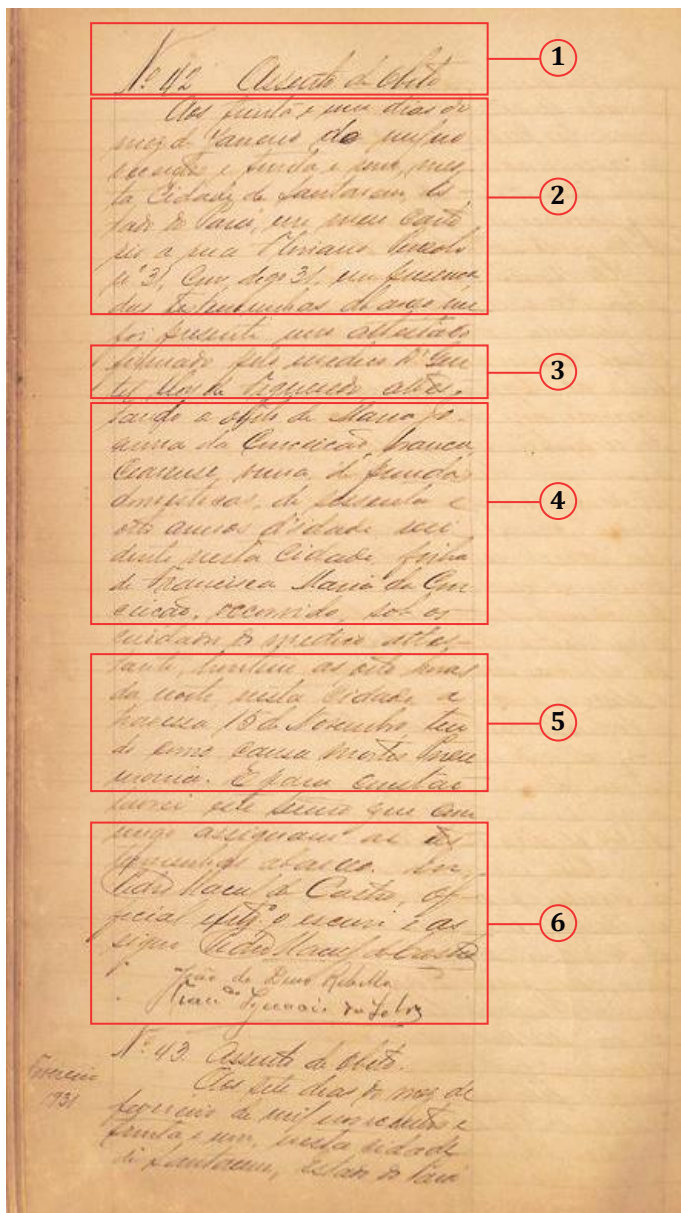 Nº 42 Assento de Obito
1
Aos trinta e um dias do
mez de Janeiro do mil no
vecentos e trinta e um, nes
ta Cidade de Santarem, Es-
2
tado do Pará, em meu Carto
rio a rua Floriano Peixoto
nº 31, digo 31, em presença
das testemunhas abaixo me
foi presente um attestado
firmado pelo medico Dr
3
de Figueiredo attes-
tando o obito de Maria Jo-
anna da Conceição, branca,
Cearense, de prendas
domesticas, de sessenta e
4
oito annos d'idade resi
dente nesta Cidade, filha
de Francisca Maria da Con
ceição, occorrido, sob os
cuidados do medico attes-
tante, hontem as oito horas
da noite, nesta Cidade, a
travessa 15 de Novembro, ten
5
do como causa mortis pneu
monia. E para constar
lavrei este termo que com
migo assignam as tes
temunhas abaixo. Eu,
Maciel de Castro, of
ficial o escrevi e as
6
signo Maciel de Castro
João de Deus Rebello
Franco Ignacio da
Nº 43. Assento de Obito.
Fevereiro
1931
Aos sete dias do mez de
fevereiro de mil novecentos e
trinta e um, nesta cidade
de Santarem, Estado do Pará